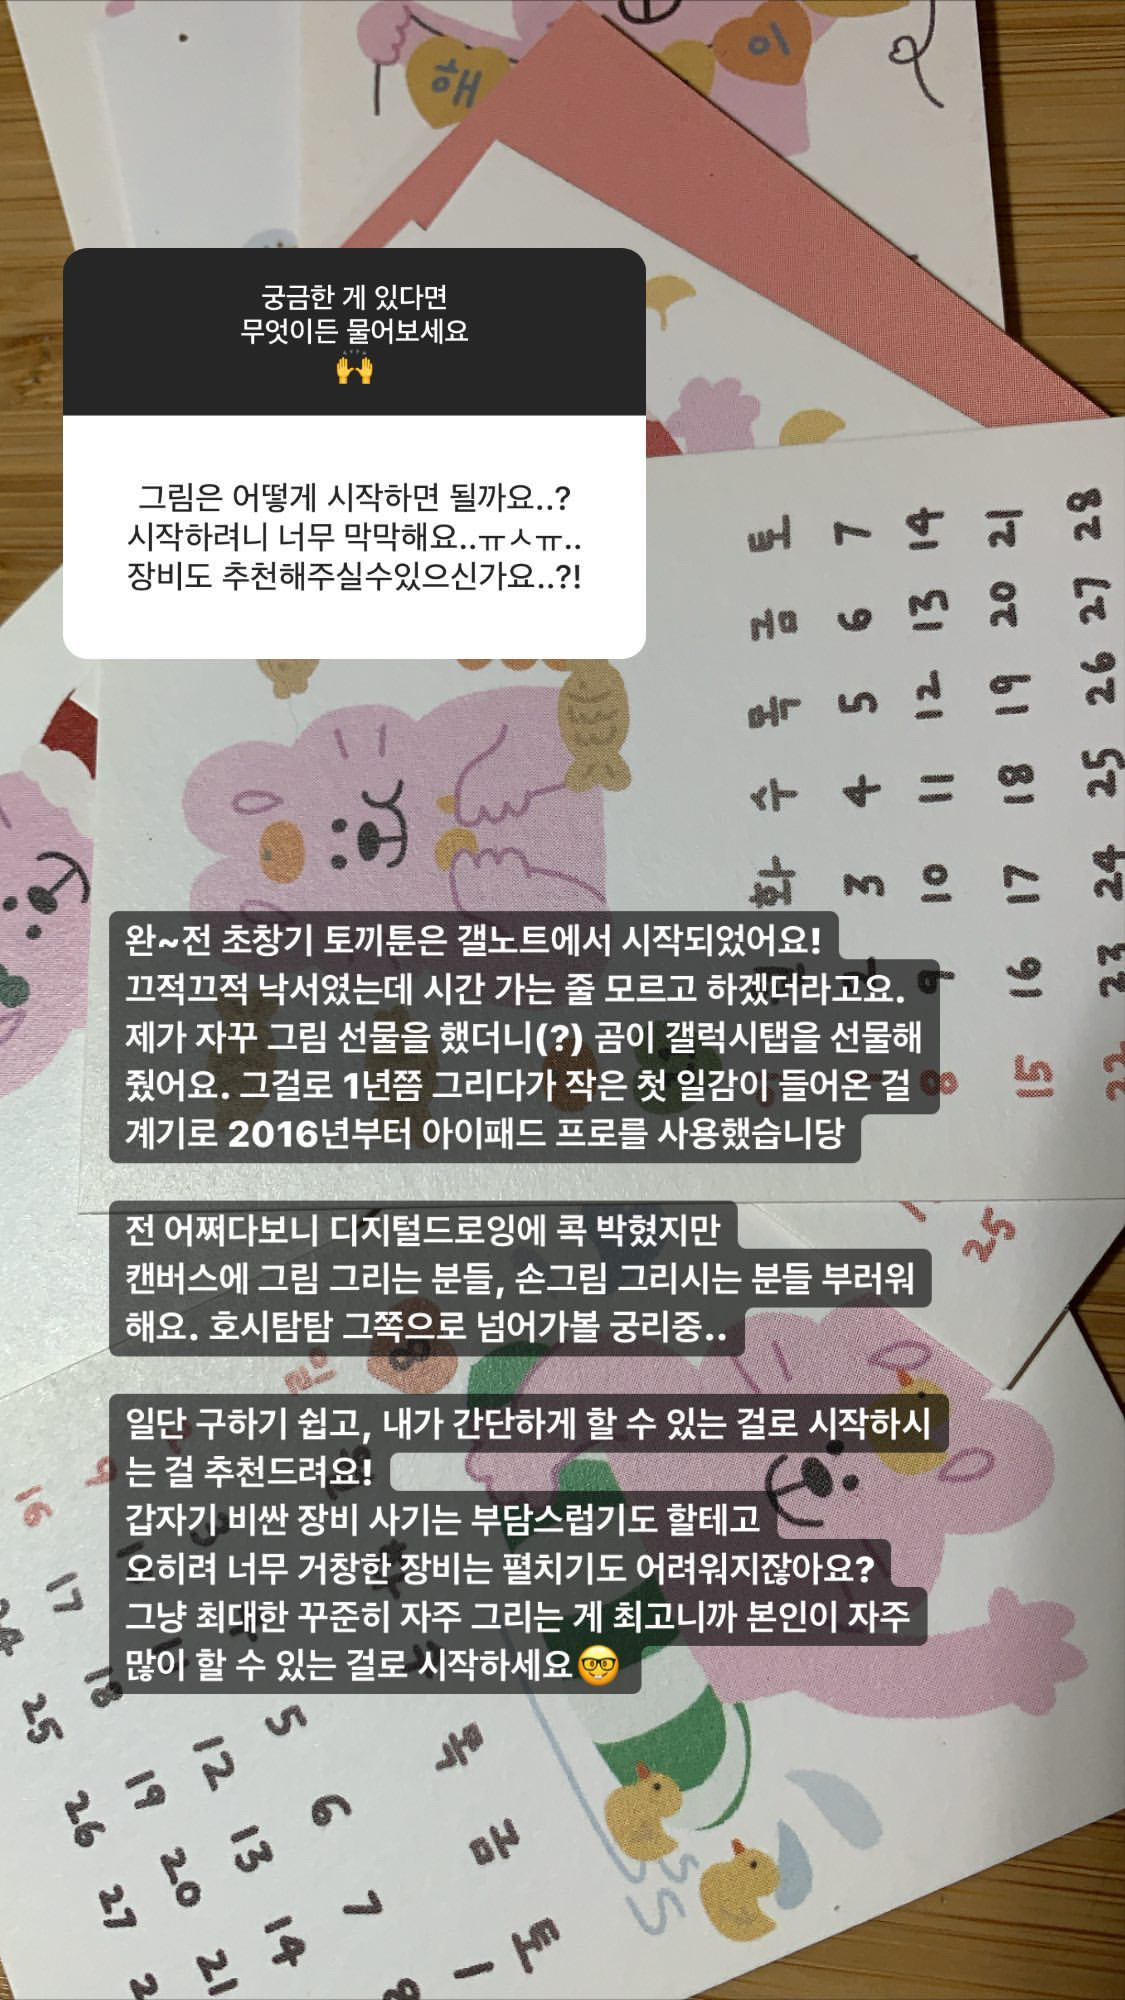 해
이
궁금한 게 있다면
무엇이든 물어보세요
🙌
그림은 어떻게 시작하면 될까요..?
시작하려니 너무 막막해요..ㅠㅅㅠ..
장비도 추천해주실수있으신가요..?!
토 7 14 21 28
금 6 13 20 27
목 5 12 19 26
수 4 11 18 25
화 3 10 17 24
2 9 16 23
8 15 22
완~전 초창기 토끼툰은 갤노트에서 시작되었어요!
끄적끄적 낙서였는데 시간 가는 줄 모르고 하겠더라고요.
제가 자꾸 그림 선물을 했더니(?) 곰이 갤럭시탭을 선물해
줬어요. 그걸로 1년쯤 그리다가 작은 첫 일감이 들어온 걸
계기로 2016년부터 아이패드 프로를 사용했습니당
25
전 어쩌다보니 디지털드로잉에 콕 박혔지만
캔버스에 그림 그리는 분들, 손그림 그리시는 분들 부러워
해요. 호시탐탐 그쪽으로 넘어가볼 궁리중..
8
일단 구하기 쉽고, 내가 간단하게 할 수 있는 걸로 시작하시
는 걸 추천드려요!
갑자기 비싼 장비 사기는 부담스럽기도 할테고
오히려 너무 거창한 장비는 펼치기도 어려워지잖아요?
그냥 최대한 꾸준히 자주 그리는 게 최고니까 본인이 자주
많이 할 수 있는 걸로 시작하세요🤓
9 16
17 24
18 25
목 5 12 19 26
금 6 13 20 27
토 1 7 14 21
8